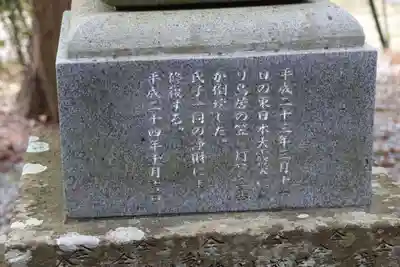 平成二十三年三月十一
日の東日本大震災によ
り鳥居の笠
が倒壊した。
氏子一同の浄財により
修復する。
平成二十四年十月吉日